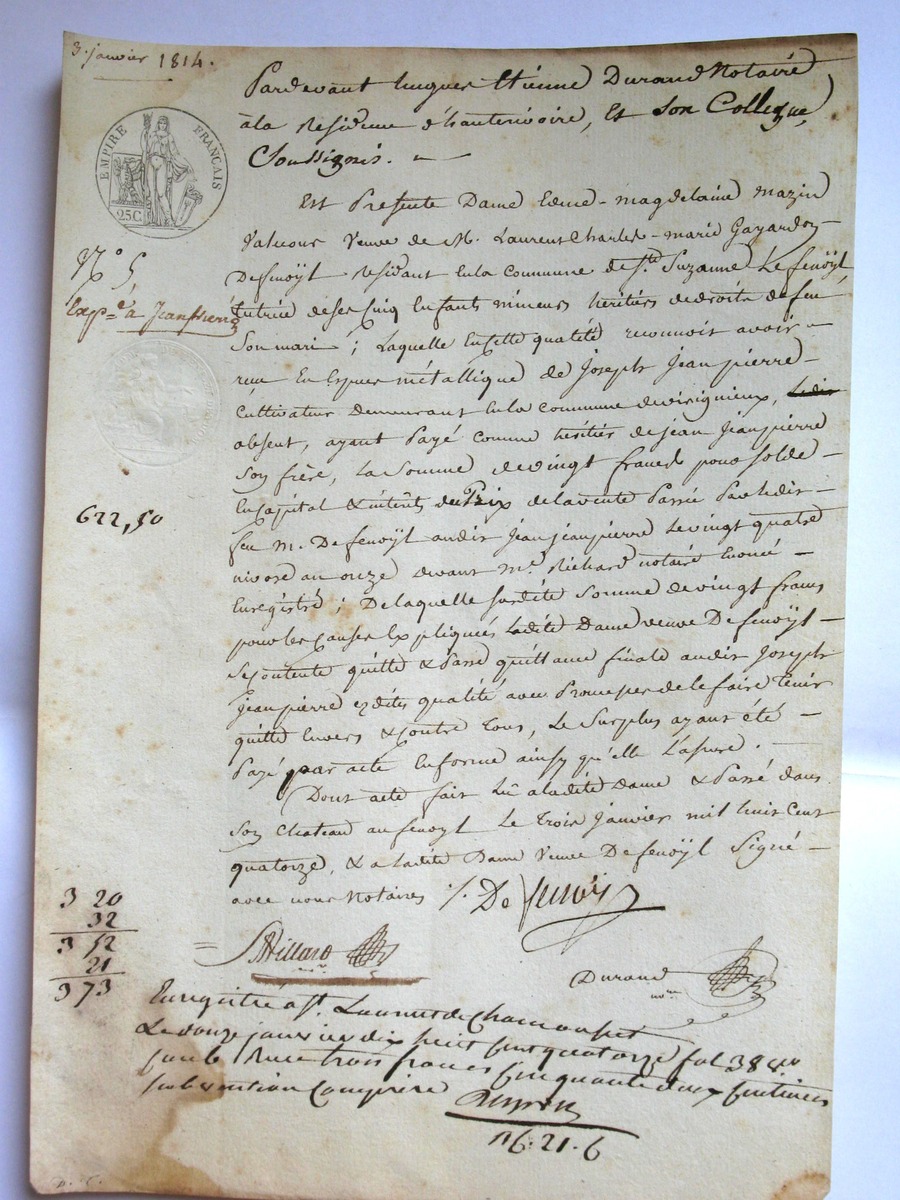 3. janvier 1814.
Pardevant hugues Etienne Durand Notaire
à la Residence d'hauterivoire, et son Collegue,
Soussignés.
EMPIRE FRANÇAIS
25C
Est Presente Dame Edme-magdelaine mazin
Valuous Veuve de M. Laurent Charles-marie Gayardon
Defenoÿl residant en la commune de Ste Suzanne Le fenoÿl,
N° 5
tutrice de ses cinq Enfants mineurs héritiers de droits de feu
Expé à Jeanpierre
Son mari ; Laquelle en cette qualité reconnoit avoir
reçu En Espèces métallique de Joseph Jeanpierre
Cultivateur demeurant en la commune de virignieux,
absent, ayant Payé comme héritier de jean jeanpierre
Son frère, la Somme de vingt francs pour solde
622,50
En capital & intérêts du Prix de la vente Passée Par ledit
feu M. De fenoÿl audit Jean jeanpierre le vingt quatre
nivose an onze devant Me Richard notaire
Enregistré ; De laquelle susdite Somme de vingt francs
pour les causes Expliquées Ladite Dame veuve De fenoÿl
Se contente quitte & Passe quittance finale audit Joseph
jeanpierre esdites qualité avec Promesse de le faire tenir
quitte Envers & contre tous, le Surplus ayant été
Payé par acte En forme ainsy qu'elle l'assure.
Dont acte fait Lû a ladite Dame & Passé dans
Son Chateau au fenoÿl le trois janvier mil huit cent
quatorze, & a ladite Dame Veuve De fenoÿl Signé
avec nous Notaires
De fenoÿl
3 20
32
3 52
21
3 73
Durand
Enregistré a St. Laurent de Chamousset
Le douze janvier dix huit cent quatorze fol 38
trois francs cinquante deux centimes
subvention comprise
16. 21. 6